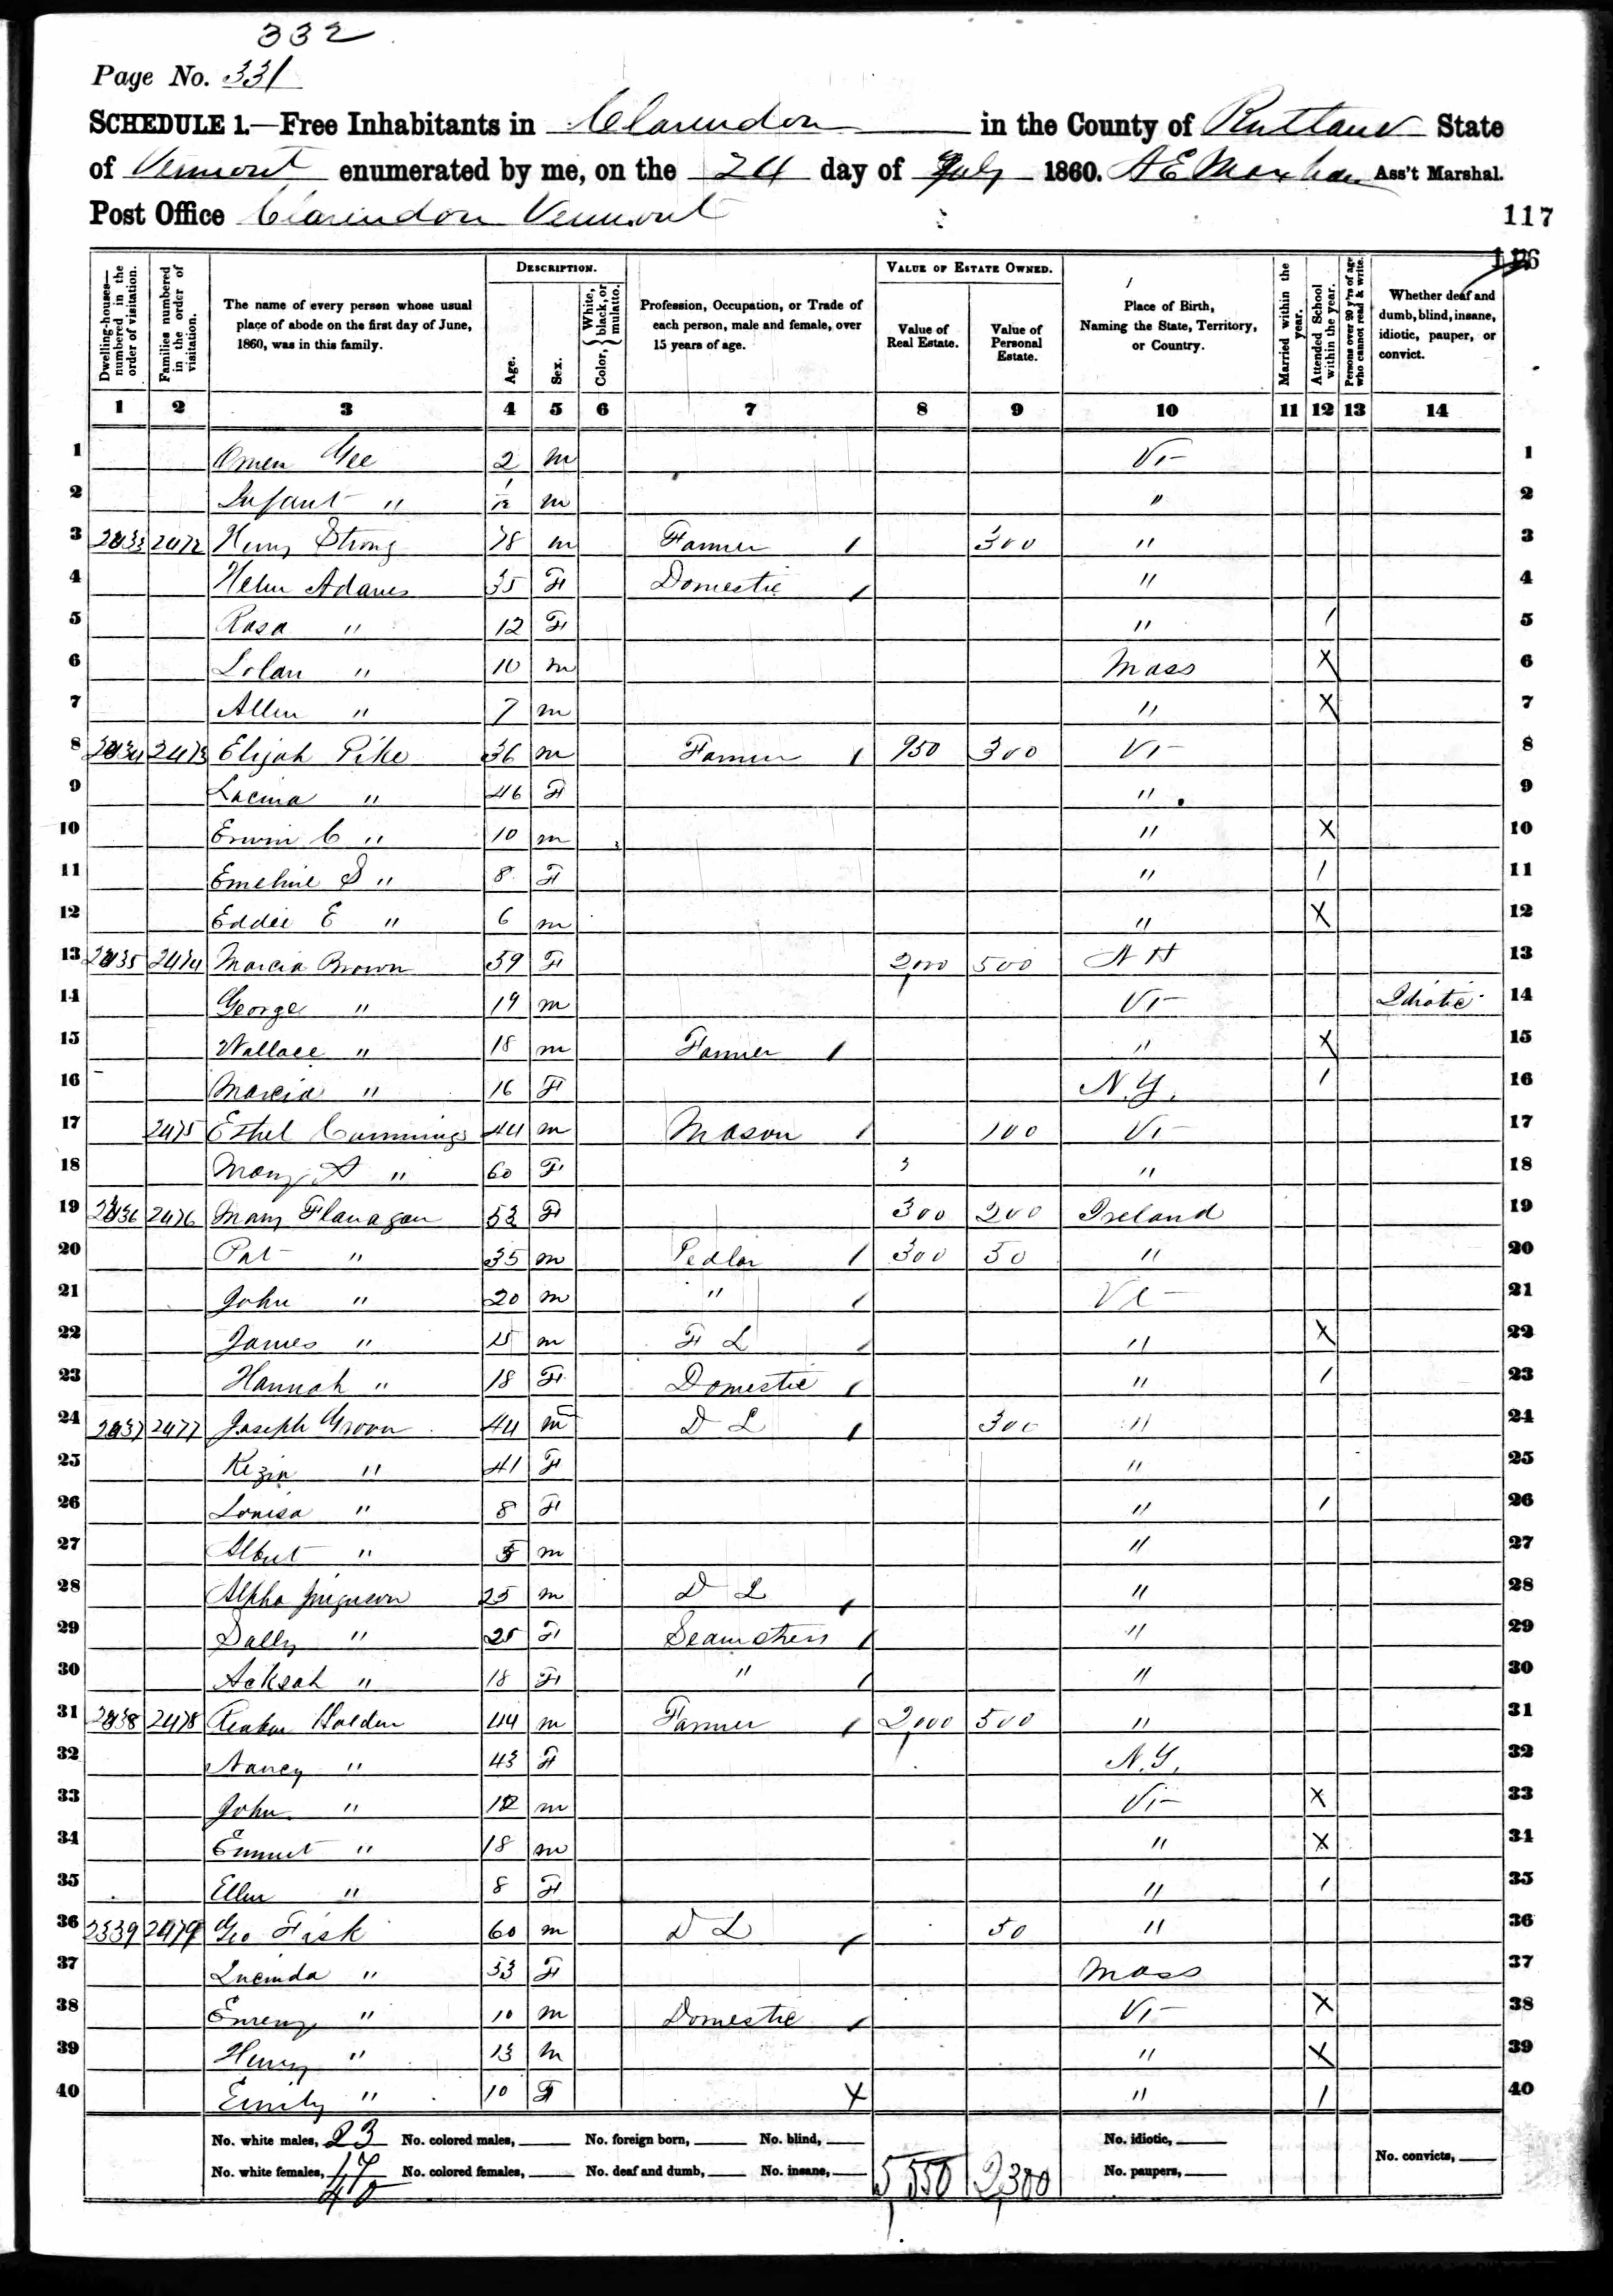 332
Page No. 331
SCHEDULE 1.—Free Inhabitants in Clarendon in the County of Rutland State
of Vermont enumerated by me, on the 24 day of July 1860. A E Ass't Marshal.
Post Office Clarendon Vermont
117
116
Dwelling-houses—numbered in the order of visitation.
Families numbered in the order of visitation.
The name of every person whose usual place of abode on the first day of June, 1860, was in this family.
DESCRIPTION.
Age.
Sex.
Color, { White, black, or mulatto.
Profession, Occupation, or Trade of each person, male and female, over 15 years of age.
VALUE OF ESTATE OWNED.
Value of Real Estate.
Value of Personal Estate.
Place of Birth, Naming the State, Territory, or Country.
Married within the year.
Attended School within the year.
Persons over 20 y'rs of age who cannot read & write.
Whether deaf and dumb, blind, insane, idiotic, pauper, or convict.
1 2 3 4 5 6 7 8 9 10 11 12 13 14
1 Omen Gee 2 m Vt 1
2 Infant " m " 2
3 2472 Henry Strong 78 m Farmer / 300 " 3
4 Helen Adams 35 F Domestic / " 4
5 Rosa " 12 F " / 5
6 Lolan " 10 m Mass X 6
7 Allen " 7 m " X 7
8 2473 Elijah Pike 36 m Farmer / 950 300 Vt 8
9 Lucina " 46 F " 9
10 Erwin C " 10 m " X 10
11 Emeline S " 8 F " / 11
12 Eddie E " 6 m " X 12
13 2474 Marcia Brown 59 F 2,000 500 N H 13
14 George " 19 m Vt Idiotic 14
15 Wallace " 18 m Farmer / " X 15
16 Marcia " 16 F N.Y. / 16
17 2475 Ethel Cummings 44 m Mason / 100 Vt 17
18 Mary A " 60 F " 18
19 2476 Mary Flanagan 53 F 300 200 Ireland 19
20 Pat " 35 m Pedlar / 300 50 " 20
21 John " 20 m " / Vt 21
22 James " 15 m F L / " X 22
23 Hannah " 18 F Domestic / " / 23
24 2477 Joseph Groon 44 m D L / 300 " 24
25 Kezia " 41 F " 25
26 Louisa " 8 F " / 26
27 Albert " 5 m " 27
28 Alpha 25 m D L / " 28
29 Sally " 25 F Seamstress / " 29
30 Acksah " 18 F " / " 30
31 2478 Reuben Holden 44 m Farmer / 2,000 500 " 31
32 Nancy " 43 F N.Y. 32
33 John " 12 m Vt X 33
34 Emmet " 18 m " X 34
35 Ellen " 8 F " / 35
36 2339 2479 Geo Fisk 60 m D L / 50 " 36
37 Lucinda " 53 F Mass 37
38 " 10 m Domestic / Vt X 38
39 Henry " 13 m " X 39
40 Emily " 10 F X " / 40
No. white males, 23 No. colored males, No. foreign born, No. blind, No. idiotic,
No. white females, 17 No. colored females, No. deaf and dumb, No. insane, 5,550 2,300 No. paupers, No. convicts,
40